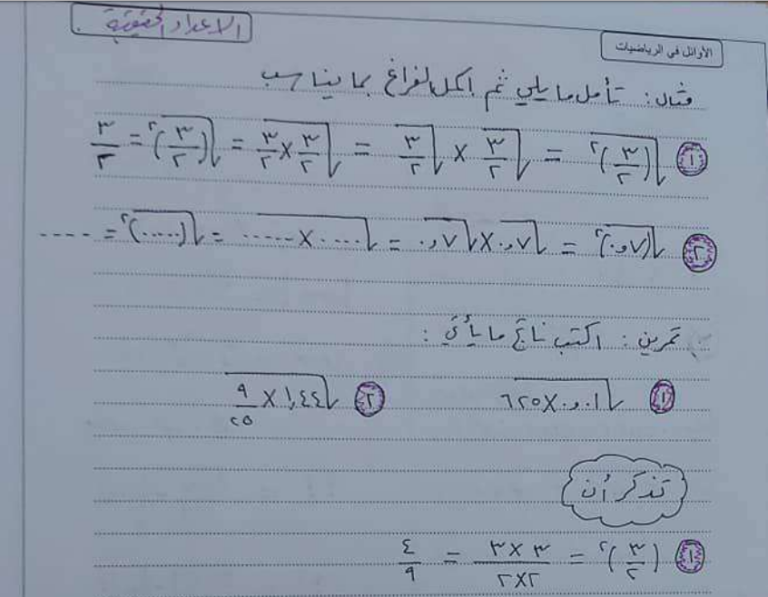 الاعداد الحقيقية
الأوائل في الرياضيات
مثال: تأمل ما يلي ثم اكمل الفراغ بما يناسب
① √(٣/٢)² = √٣/٢ × √٣/٢ = √٣/٢ × ٣/٢ = √(٣/٢)² = ٣/٢
② √(٠,٧)² = √٠,٧ × √٠,٧ = √..... × ..... = √(.....)² = ....
تمرين: اكتب ناتج ما يأتي:
① √٠,٠١ × ٦٢٥ ② √١,٤٤ × ٩/٢٥
تذكر أن
① (٣/٢)² = ٣×٣/٢×٢ = ٤/٩